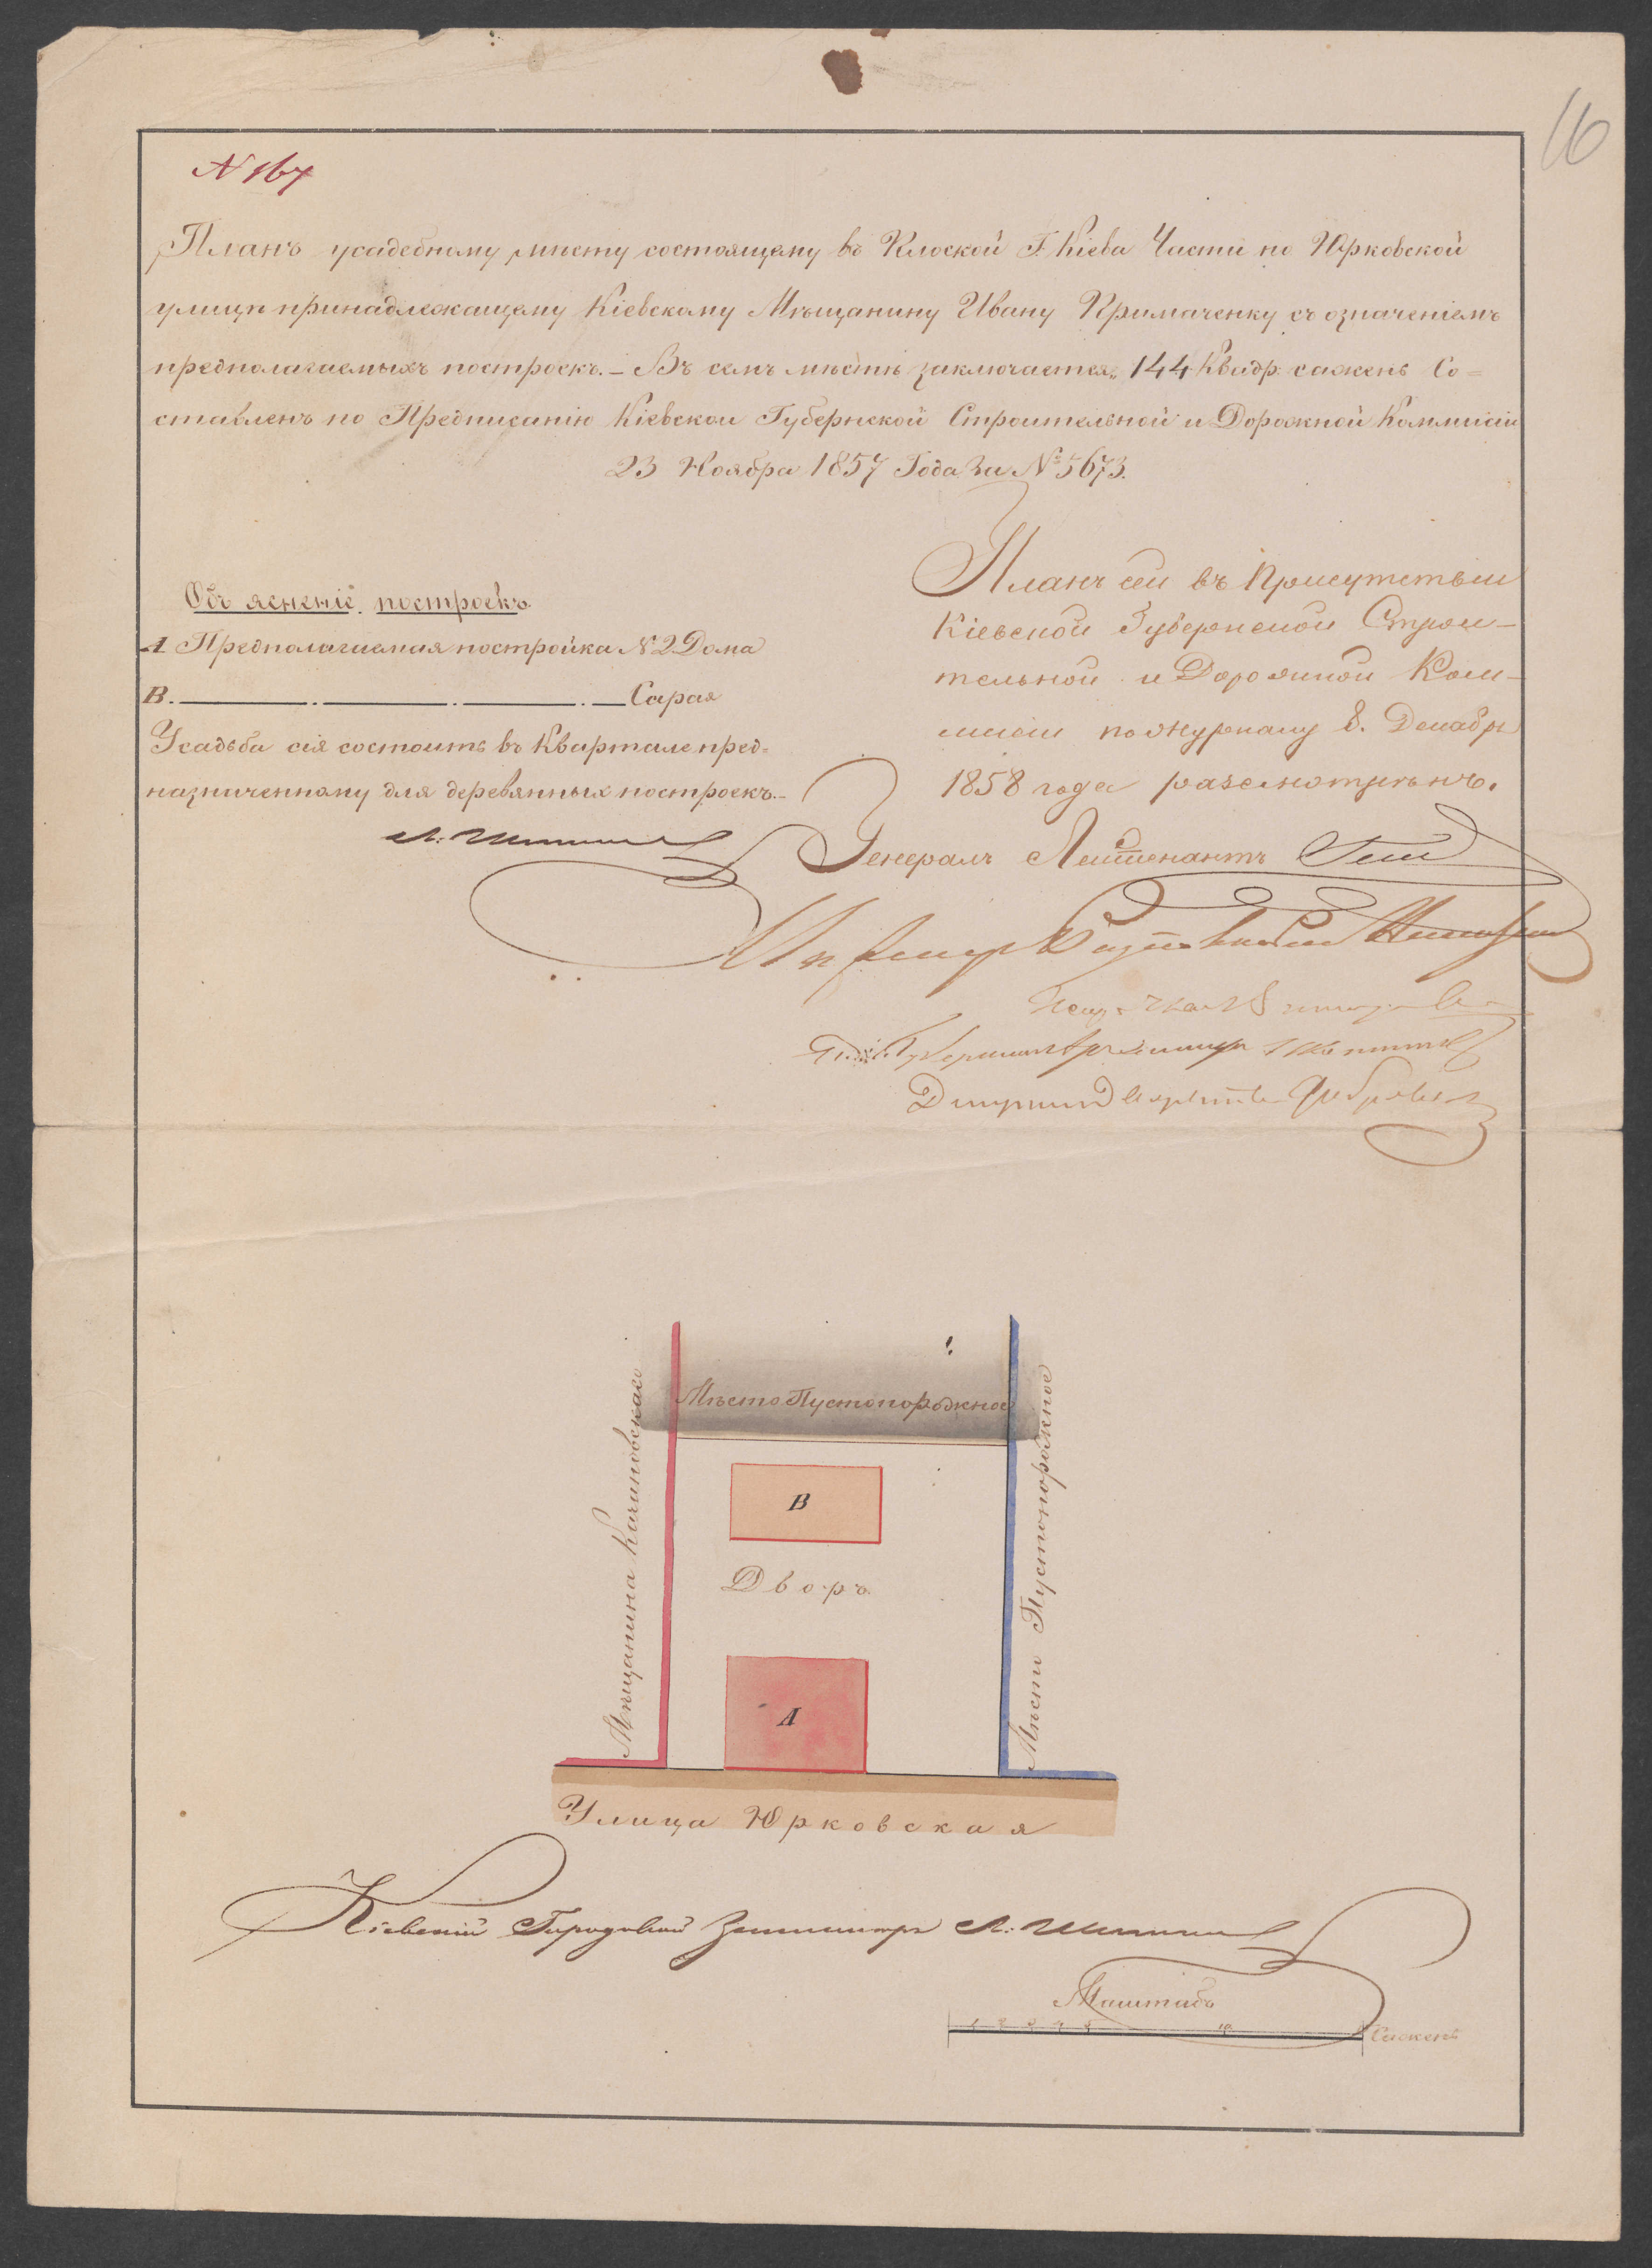 16
N 167
Планъ усадебному мѣсту состоящему въ Плоской Г. Кіева Части по Юрковской
улицѣ принадлежащему Кіевскому Мѣщанину Ивану Примаченку съ означеніемъ
предполагаемыхъ построекъ. – Въ семъ мѣстѣ заключается 144 Квадр. сажень Со=
ставленъ по Предписанію Кіевской Губернской Строительной и Дорожной Коммисіи
23 Ноября 1857 Года за № 5673.
Объясненіе построекъ
А Предполагаемая постройка № 2 Дома
В. —.—.—.— Сарая
Усадьба сія состоитъ въ Кварталѣ пред=
назначенному для деревянных построекъ. –
Планъ сей въ Присутствіи
Кіевской Губернской Строи–
тельной и Дорожной Ком–
мисіи по журналу 8. Декабря
1858 года разсмотрѣнъ.
Генералъ Лейтенантъ
Мѣсто Пустопорожное
Мѣщанина Качиновскаго
Мѣсто Пустопорожное
В
Дворъ
А
Улица Юрковская
Кіевскій Городовой Землемѣръ
Маштабъ
1 2 3 4 5 10 Сажень